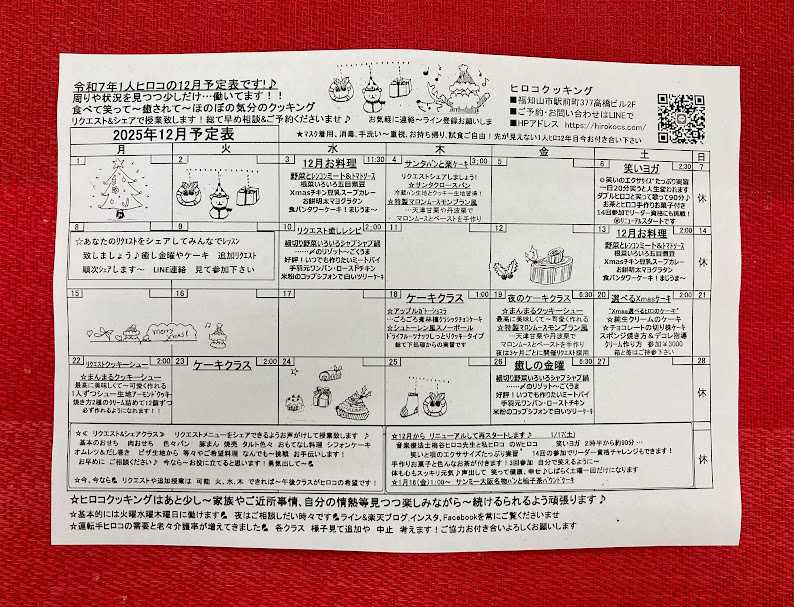 令和7年1人ヒロコの12月予定表です!♪
周りや状況を見つつ少しだけ…働いてます!!
食べて笑って~癒されて~ほのぼの気分のクッキング
リクエスト&シェアで授業致します!総て早め相談&ご予約くださいませ♪
お気軽に連絡~ライン登録お願いしま
ヒロコクッキング
■福知山市駅前町377高橋ビル2F
■ご予約・お問い合わせはLINEで
■HPアドレス https://hirokocs.com/
2025年12月予定表
★マスク着用、消毒、手洗い~重視、お持ち帰り、試食ご自由!先が見えない1人ヒロ12年目今お付き合い下さい
月 火 水 木 金 土 日
1
2
3 12月お料理 11:30
野菜とレンコンミート&トマトソース
根菜いろいろ五目煮豆
Xmasチキン豆乳スープカレー
お鮮明太マヨグラタン
食パンタワーケーキ!まじうま~
4 サンタパンと栗ケーキ 3:00
リクエストシェアしましょう!
☆サンタクロースパン
☆特製マロンムースモンブラン風
…天津甘栗や丹波栗で
マロンムースとベースを手作り
5
6 笑いヨガ 2:30
☺笑いのエクササイズたっぷり実習
一日20分笑うと人生変われます
ダブルヒロコと笑って歌って90分♪
お茶とヒロコ手作りお菓子付き
14回参加でリーダー資格にも挑戦!
7
休
8
9
☆あなたのリクエストをシェアしてみんなでレッスン
致しましょう♪癒し金曜やケーキ 追加リクエスト
順次シェアします~ LINE連絡 見て参加下さい
10 リクエスト癒しレシピ
細切り野菜いろいろシャブシャブ鍋
……〆のリゾット~ごくうま
好評!いつでも作りたいミートパイ
手羽元ワンパン・ローストチキン
米粉のコップシフォンで白いツリーケーキ
11
12
13 12月お料理 2:00
野菜とレンコンミート&トマトソース
根菜いろいろ五目煮豆
Xmasチキン豆乳スープカレー
お鮮明太マヨグラタン
食パンタワーケーキ!まじうま~
14
休
15
16
merry xmas!
17
18 ケーキクラス 1:00
☆アップルガトーショコラ
☆シュトーレン風スノーボール
19 夜のケーキクラス 6:30
☆まんまるクッキーシュー
最高に美味しくて~可愛く作れる
☆特製マロンムースモンブラン風
…天津甘栗や丹波栗で
マロンムースとベースを手作り
夜は3ヶ月ごとに開催リクエスト採用
20 選べるXmasケーキ 2:00
☆純生クリームのケーキ
☆チョコレートの切り株ケーキ
スポンジ焼き方&デコレ指導
クリーム作り方 参加¥3000
箱と茶はご持参下さい
21
休
22 リクエストクッキーシュー 2:00
☆まんまるクッキーシュー
最高に美味しくて~可愛く作れる
1人ずつシュー生地アーモンドクッキー
焼き方2種のクリーム詰めて12個ずつ
必ず作れるようになれます!!
23 ケーキクラス 2:00
24
25
26 癒しの金曜 6:30
細切り野菜いろいろシャブシャブ鍋
……〆のリゾット~ごくうま
好評!いつでも作りたいミートパイ
手羽元ワンパン・ローストチキン
米粉のコップシフォンで白いツリーケーキ
27
28
休
☆≪ リクエスト&シェアクラス≫ リクエストメニューをシェアできるようお声がけして授業致します ♪
基本のおせち 肉おせち 色々パン 豚まん 焼売 タルト色々 おもてなし料理 シフォンケーキ
オムレツ&だし巻き ピザ生地から 等々やご希望料理 なんでも~挑戦 お手伝いします!
お早めに ご相談ください♪ 今なら~お役に立てると思います!勇気出して~
☆今、今なら リクエストや追加授業は 可能 火、水、木 できれば~午後クラスがヒロコの希望です!
☆12月から リニューアルして再スタートします♪ 1/17(土)
音楽療法士裕谷ヒロコ先生と私ヒロコ のWヒロコ 笑いヨガ 2時半から約90分…
笑いと頃のエクササイズたっぷり実習 14回の参加でリーダー資格チャレンジもできます!
手作りお菓子と色んなお茶付きます!3回参加 自分で笑えるように~
体も心もスッキリ元気♪声出して 笑って健康、幸せ♪しばらく土曜一回だけになります
☆1月16(金)11:00~ サンミー大阪名物パンと柚子茶パウンドケーキ
休
☆ヒロコクッキングはあと少し~家族やご近所事情、自分の情熱等見つつ楽しみながら~続けられるよう頑張ります♪
☆基本的には火曜水曜木曜日に働けます 夜はご相談しだい時々です ライン&楽天ブログ、インスタ、Facebookを常にご覧くださいませ
★運転手ヒロコの需要と老々介護率が増えてきました 各クラス 様子見て追加や 中止 考えます!ご協力お付き合いよろしくお願いします